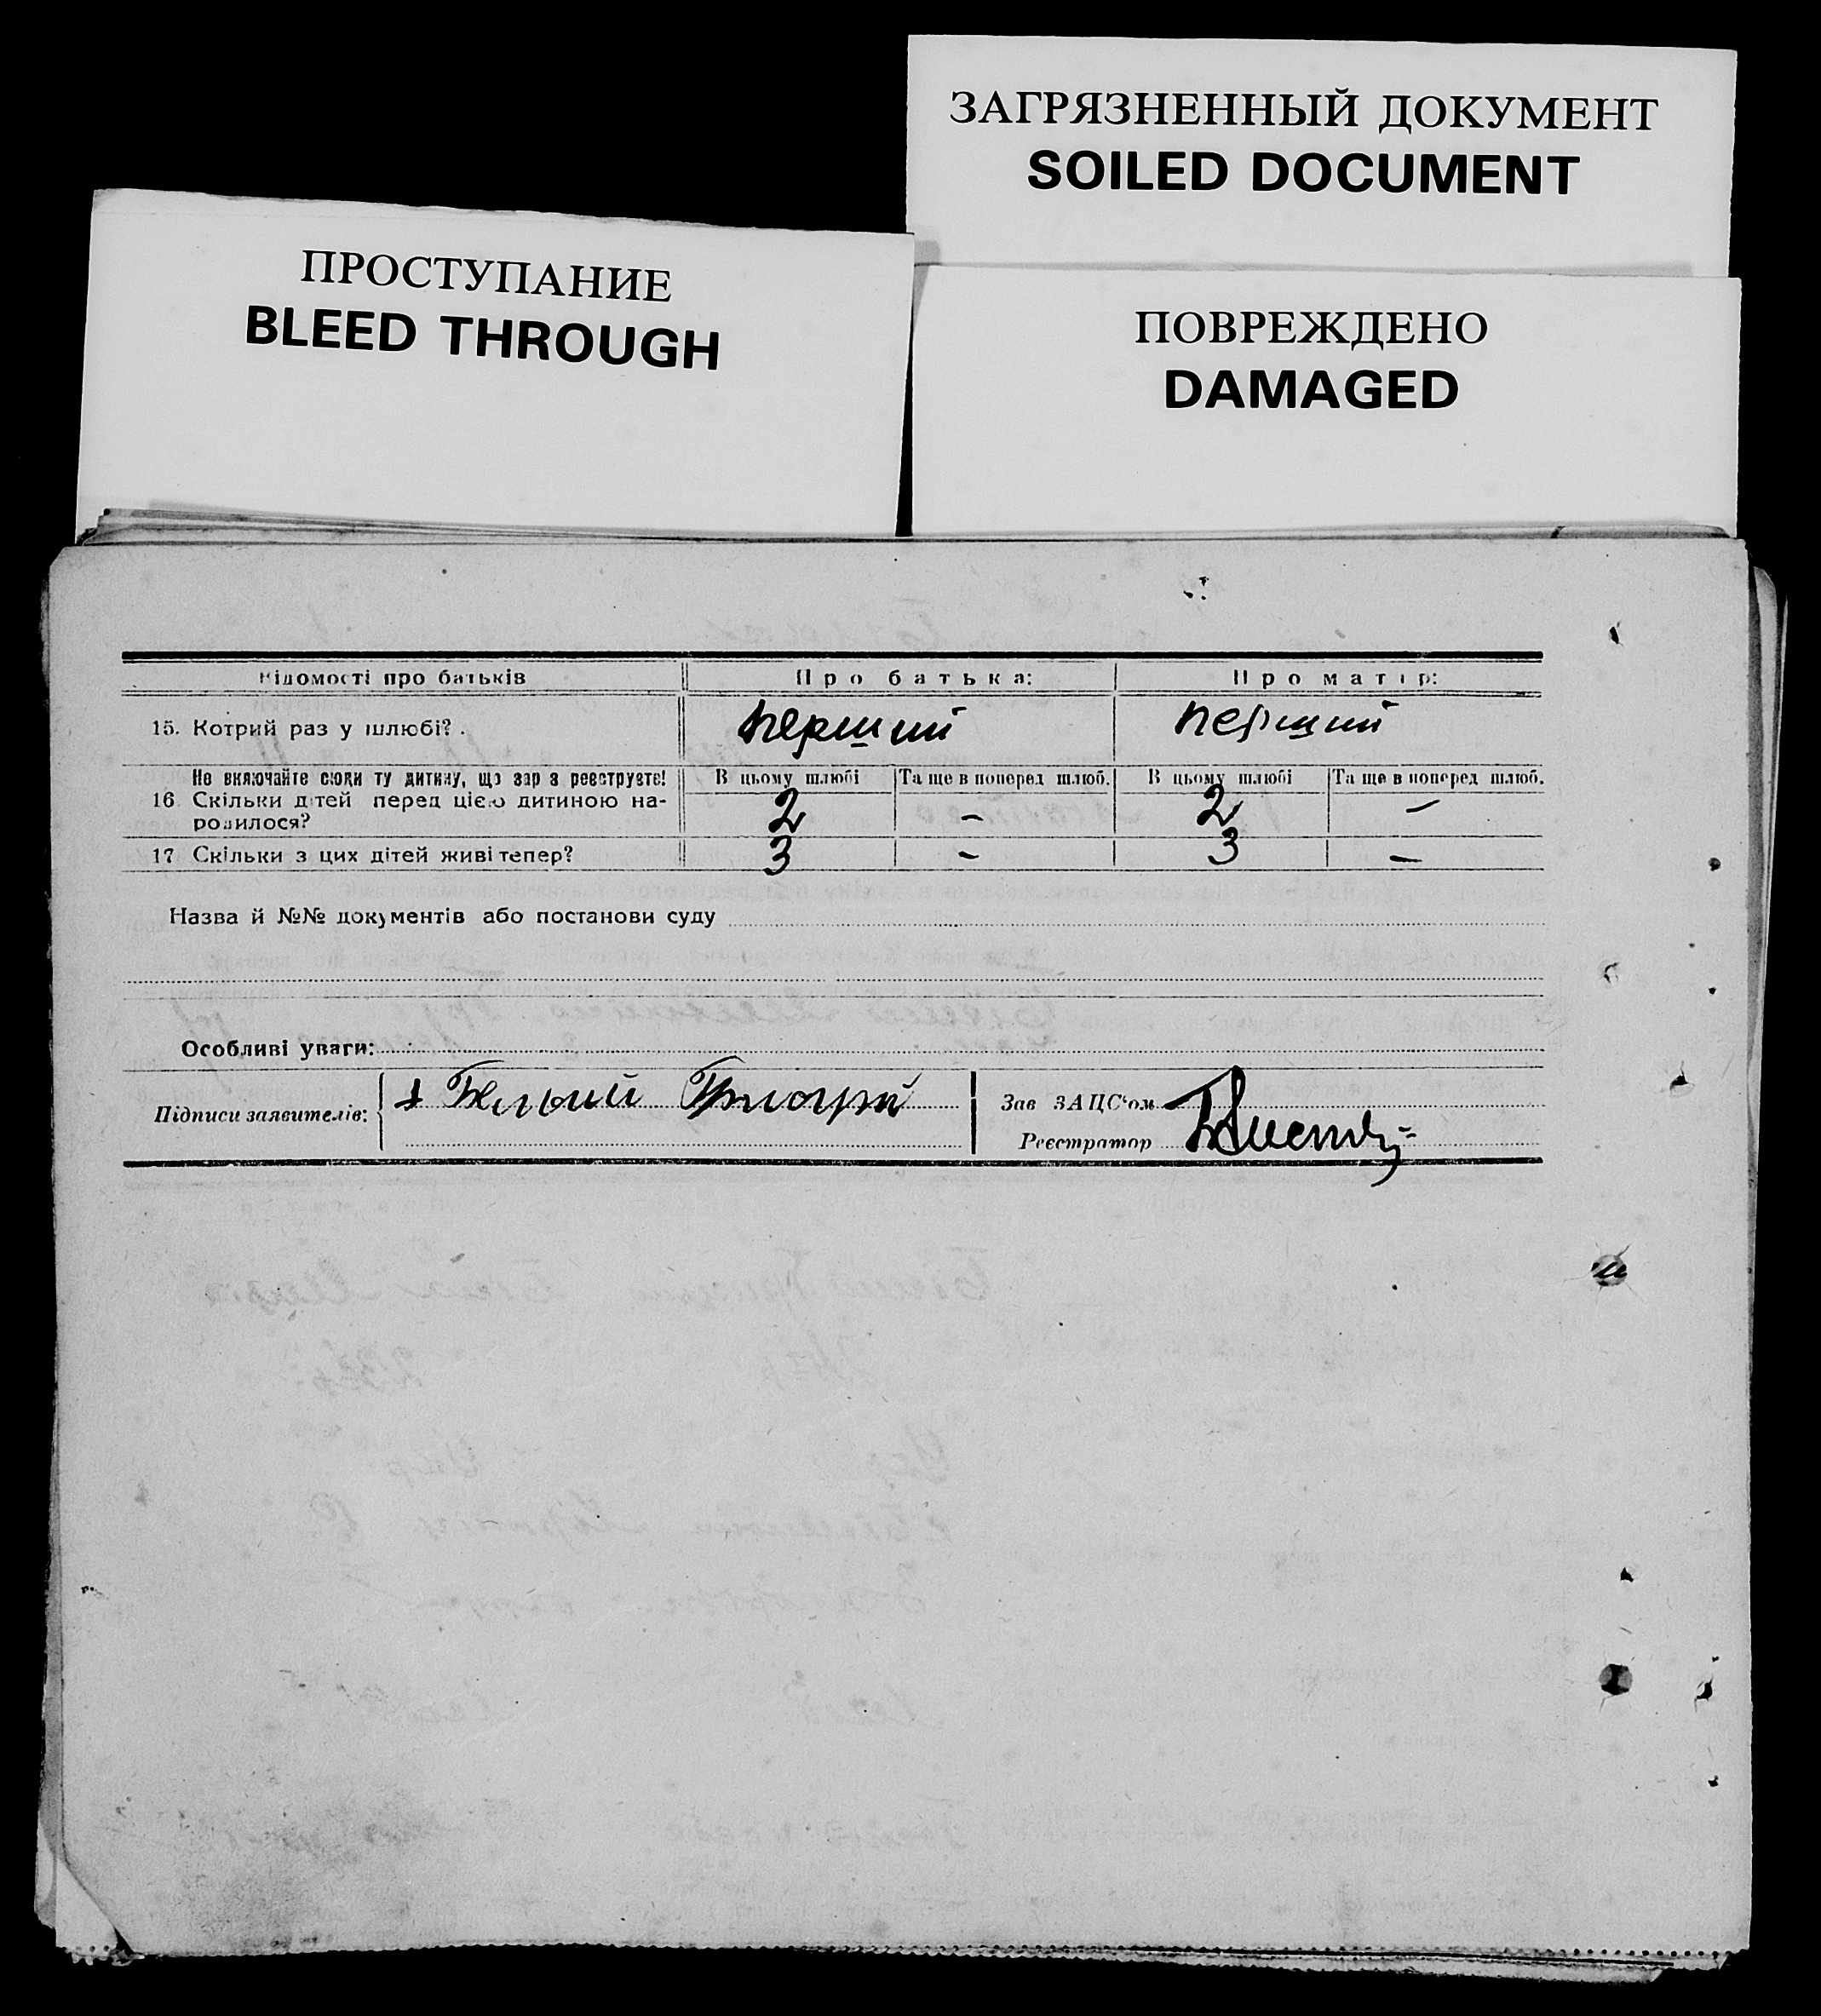 ЗАГРЯЗНЕННЫЙ ДОКУМЕНТ
SOILED DOCUMENT
ПРОСТУПАНИЕ
BLEED THROUGH
ПОВРЕЖДЕНО
DAMAGED
Відомості про батьків Про батька: Про матір:
15. Котрий раз у шлюбі? . перший перший
Не включайте сюди ту дитину, що зар з реєструєте! В цьому шлюбі Та ще в поперед шлюб. В цьому шлюбі Та ще в поперед шлюб.
16 Скільки дітей перед цією дитиною на- 2 – 2 –
родилося?
17 Скільки з цих дітей живі тепер? 3 – 3 –
Назва й №№ документів або постанови суду
Особливі уваги:
Підписи заявителів: 1 Григорій Зав ЗАЦС'ом
Реєстратор